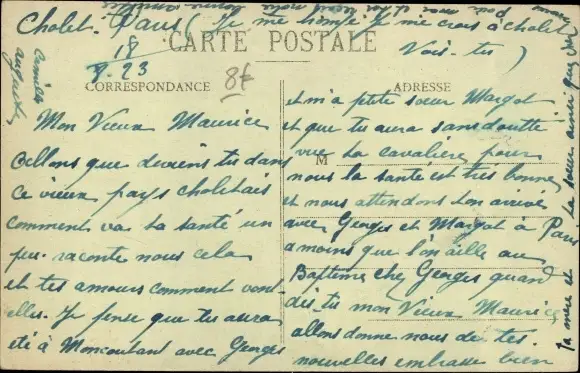 Cholet. Paris (Je me trompe je me crois à cholet
Vois-tu)
18
8.23
CARTE POSTALE
CORRESPONDANCE
8f
ADRESSE
M
Camille
Auguste
Mon Vieux Maurice
Allons que deviens tu dans
ce vieux pays choletais
comment va ta santé un
peu raconte nous cela
et tes amours comment vont
elles. Je pense que tu auras
été à Moncoutant avec Georges
et m'a petite soeur Margot
et que tu aura sans doutte
vue ta cavalière pour
nous la santé est très bonne
et nous attendons ton arrivé
avec Georges et Margot à Paris
a moins que l'on aille au
Baptème chez Georges quand
dis-tu mon Vieux Maurice
allons donne nous de tes
nouvelles embrasse bien
ta mère et ta soeur ainsi que
pour nous